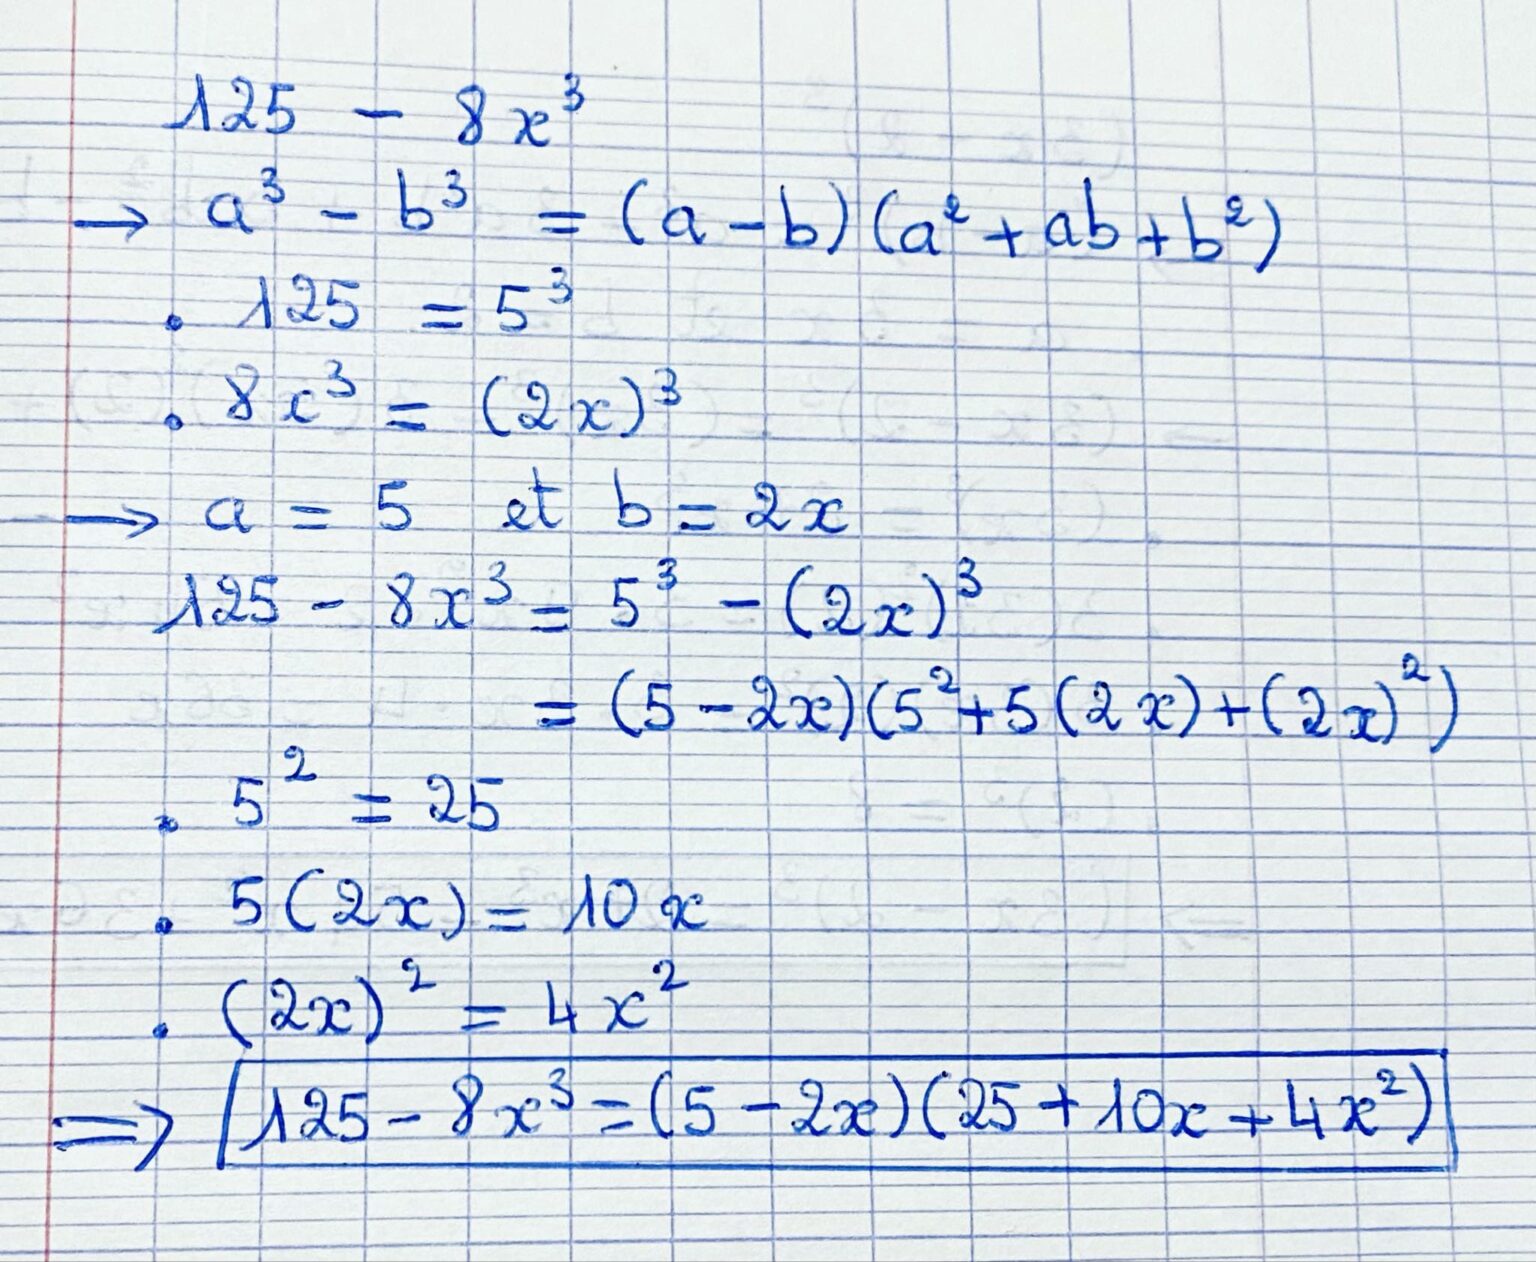 125 - 8x³
→ a³ - b³ = (a - b)(a² + ab + b²)
. 125 = 5³
. 8x³ = (2x)³
→ a = 5 et b = 2x
125 - 8x³ = 5³ - (2x)³
= (5 - 2x)(5² + 5(2x) + (2x)²)
. 5² = 25
. 5(2x) = 10x
. (2x)² = 4x²
⇒ 125 - 8x³ = (5 - 2x)(25 + 10x + 4x²)